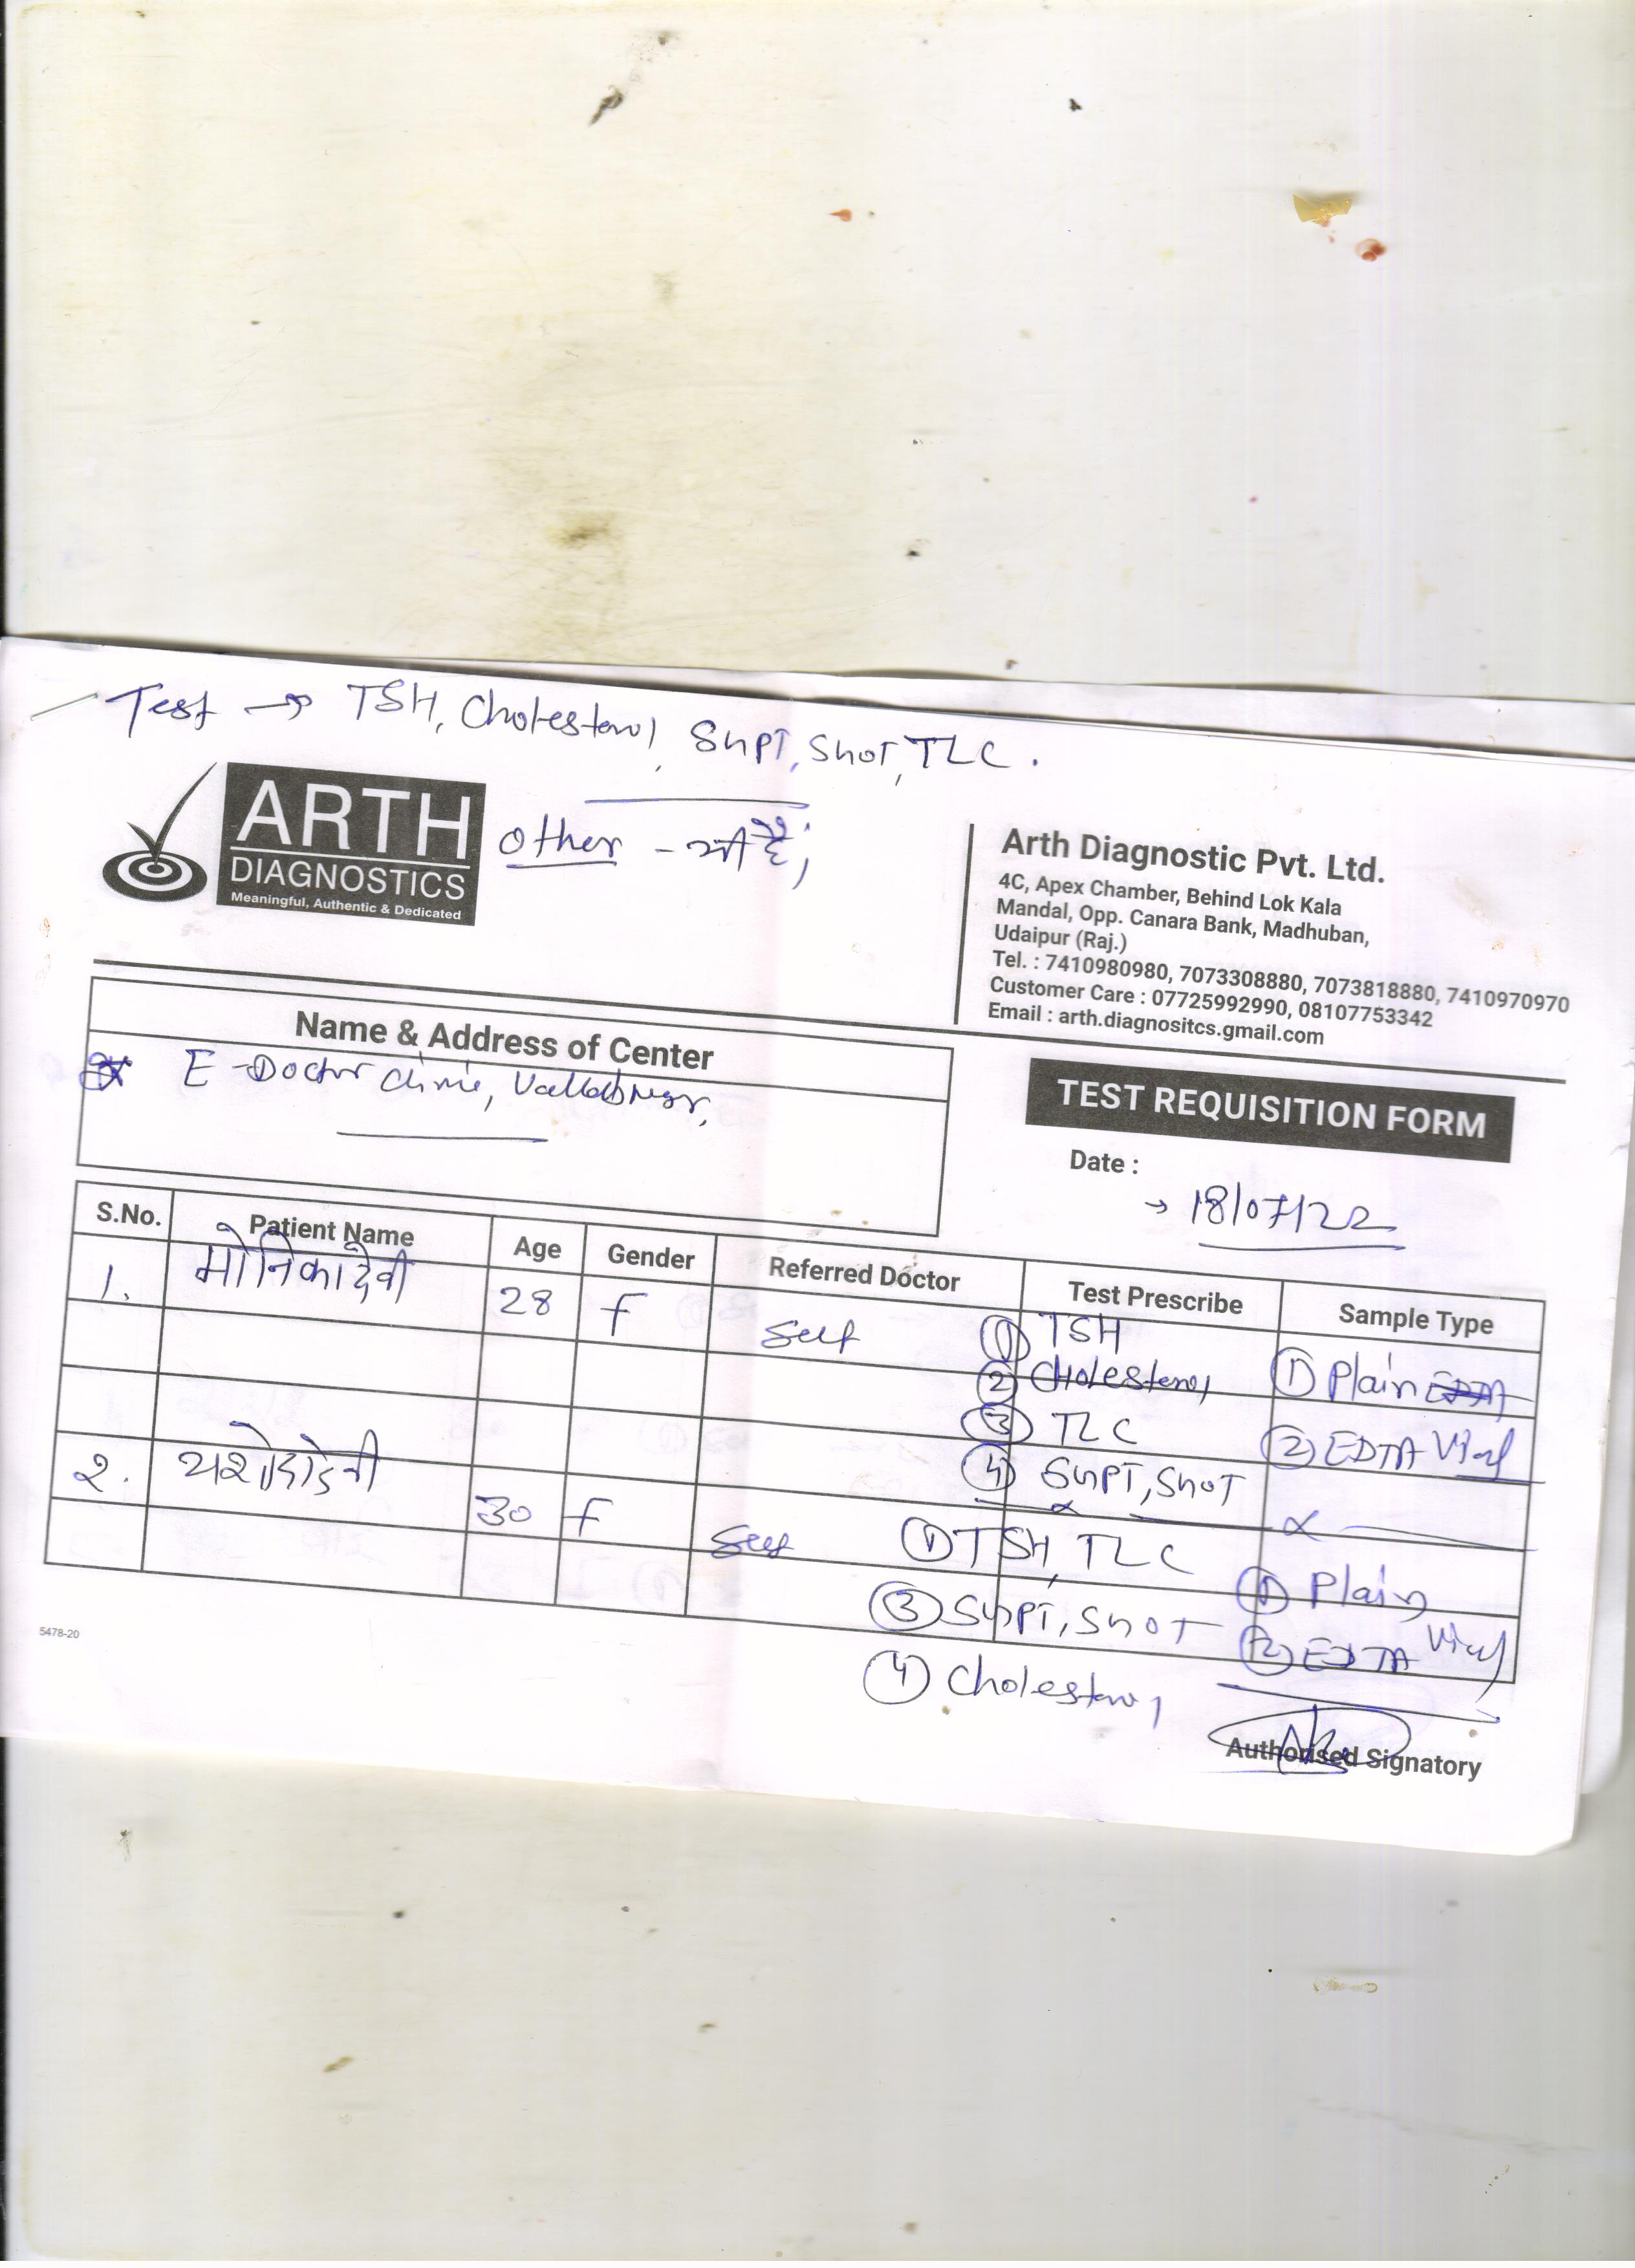 Test → TSH, Cholesterol, SGPT, SGOT, TLC.
ARTH
DIAGNOSTICS
Meaningful, Authentic & Dedicated
Other -
Arth Diagnostic Pvt. Ltd.
4C, Apex Chamber, Behind Lok Kala
Mandal, Opp. Canara Bank, Madhuban,
Udaipur (Raj.)
Tel. : 7410980980, 7073308880, 7073818880, 7410970970
Customer Care : 07725992990, 08107753342
Email : arth.diagnositcs.gmail.com
Name & Address of Center
E-Doctor Clinic,
TEST REQUISITION FORM
Date :
→ 18/07/22
S.No. Patient Name Age Gender Referred Doctor Test Prescribe Sample Type
1. मोनिका देवी 28 F Self ① TSH ① Plain
② Cholesterol
③ TLC ② EDTA Vial
④ SGPT, SGOT
२. 30 F Self ① TSH, TLC ① Plain
③ SGPT, SGOT ② EDTA Vial
④ Cholesterol
5478-20
Authorised Signatory